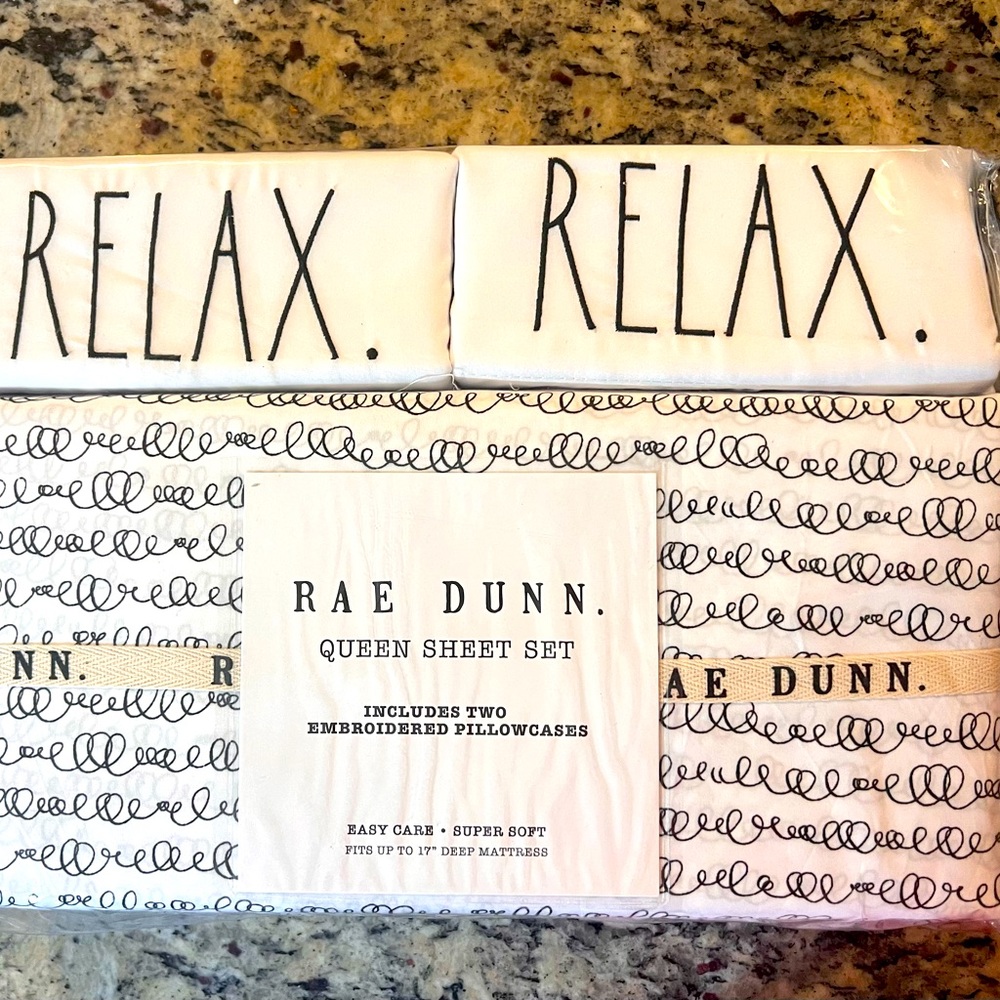 RELAX. RELAX.
RAE DUNN.
QUEEN SHEET SET
NN. R
AE DUNN.
INCLUDES TWO
EMBROIDERED PILLOWCASES
EASY CARE • SUPER SOFT
FITS UP TO 17" DEEP MATTRESS